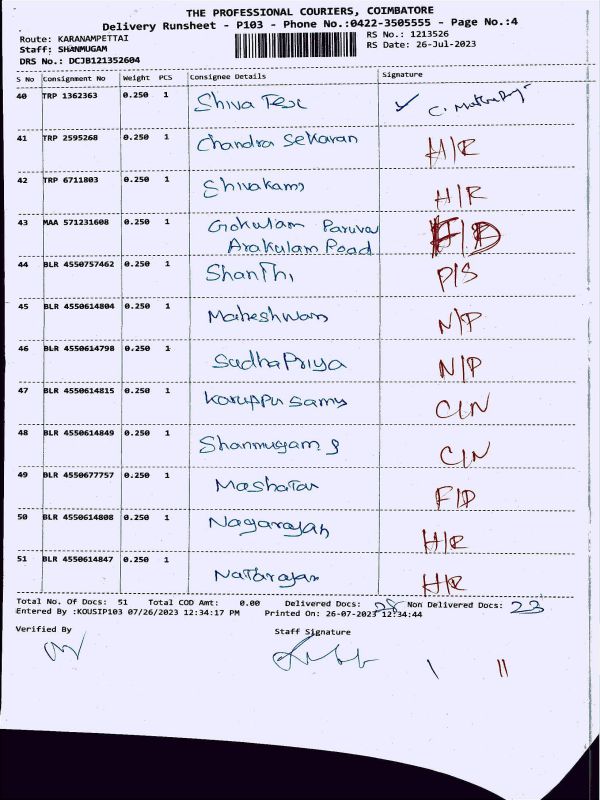 THE PROFESSIONAL COURIERS, COIMBATORE
Delivery Runsheet - P103 - Phone No.:0422-3505555 - Page No.:4
Route: KARANAMPETTAI
RS No.: 1213526
Staff: SHANMUGAM
RS Date: 26-Jul-2023
DRS No.: DCJB121352604
S No Consignment No Weight PCS Consignee Details Signature
40 TRP 1362363 0.250 1 Shiva Tex
41 TRP 2595268 0.250 1 Chandra Sekaran H/R
42 TRP 6711803 0.250 1 Shivakami H/R
43 MAA 571231608 0.250 1 Gokulam Paruva
Arakulam Road
44 BLR 4550757462 0.250 1 Shanthi P/S
45 BLR 4550614804 0.250 1 Maheshwari N/P
46 BLR 4550614798 0.250 1 SudhaPriya N/P
47 BLR 4550614815 0.250 1 Karuppu Samy CLN
48 BLR 4550614849 0.250 1 Shanmugam S CLN
49 BLR 4550677757 0.250 1 F/D
50 BLR 4550614808 0.250 1 Nagarajan H/R
51 BLR 4550614847 0.250 1 Natarajan H/R
Total No. Of Docs: 51 Total COD Amt: 0.00 Delivered Docs: 28 Non Delivered Docs: 23
Entered By :KOUSIP103 07/26/2023 12:34:17 PM Printed On: 26-07-2023 12:34:44
Verified By Staff Signature